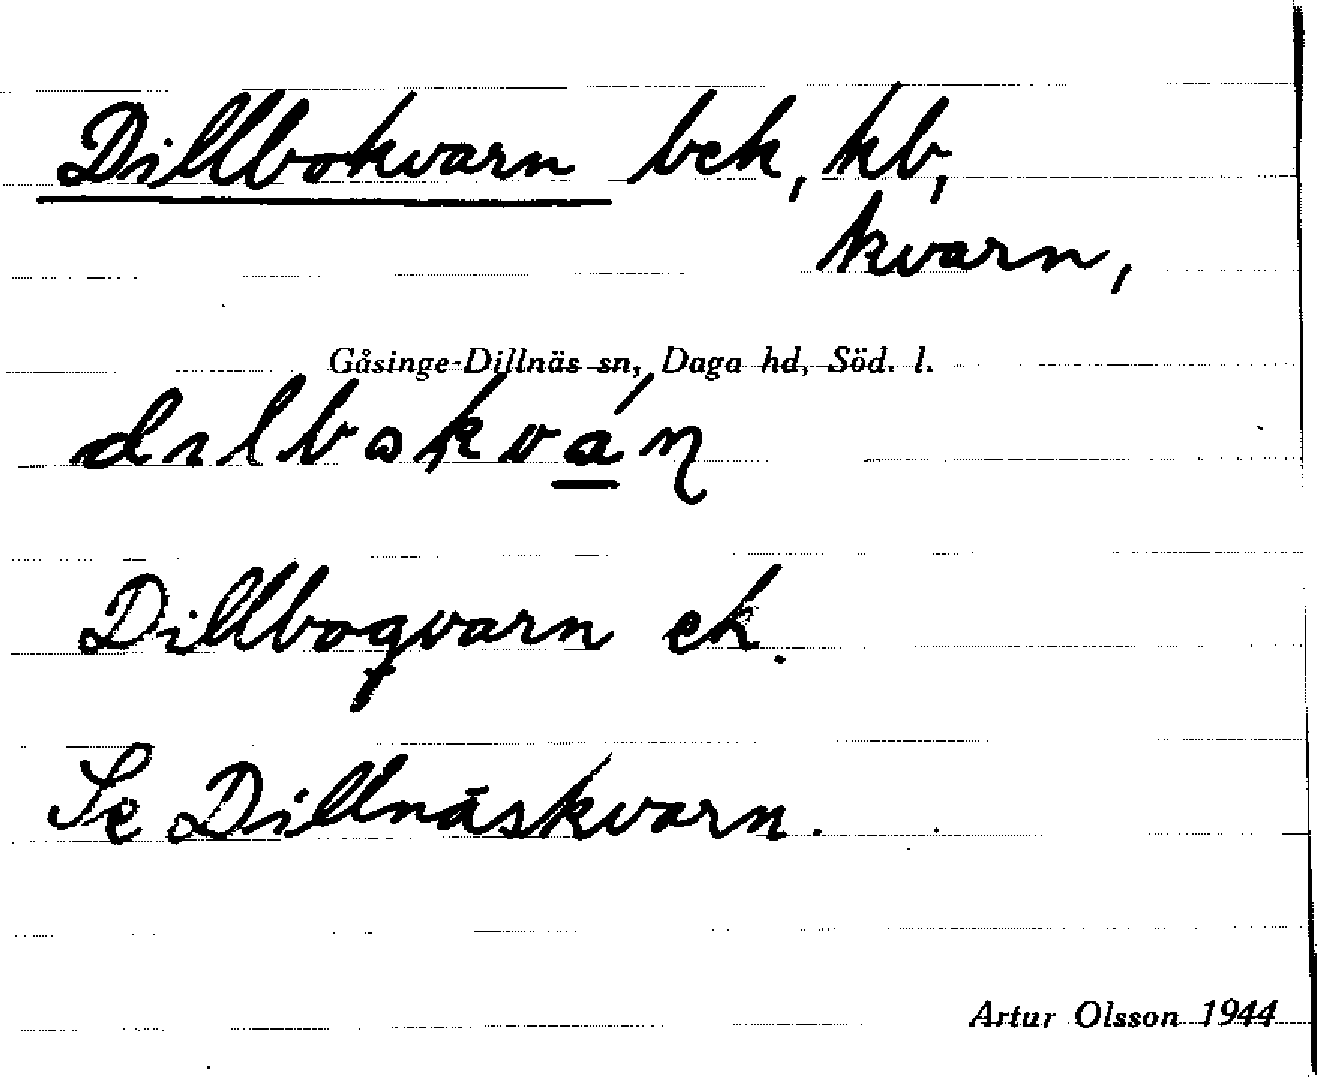 Dillbokvarn bek, kb,
kvarn,
Gåsinge-Dillnäs sn, Daga hd, Söd. l.
Dillboqvarn ek.
Se Dillnäskvarn.
Artur Olsson 1944